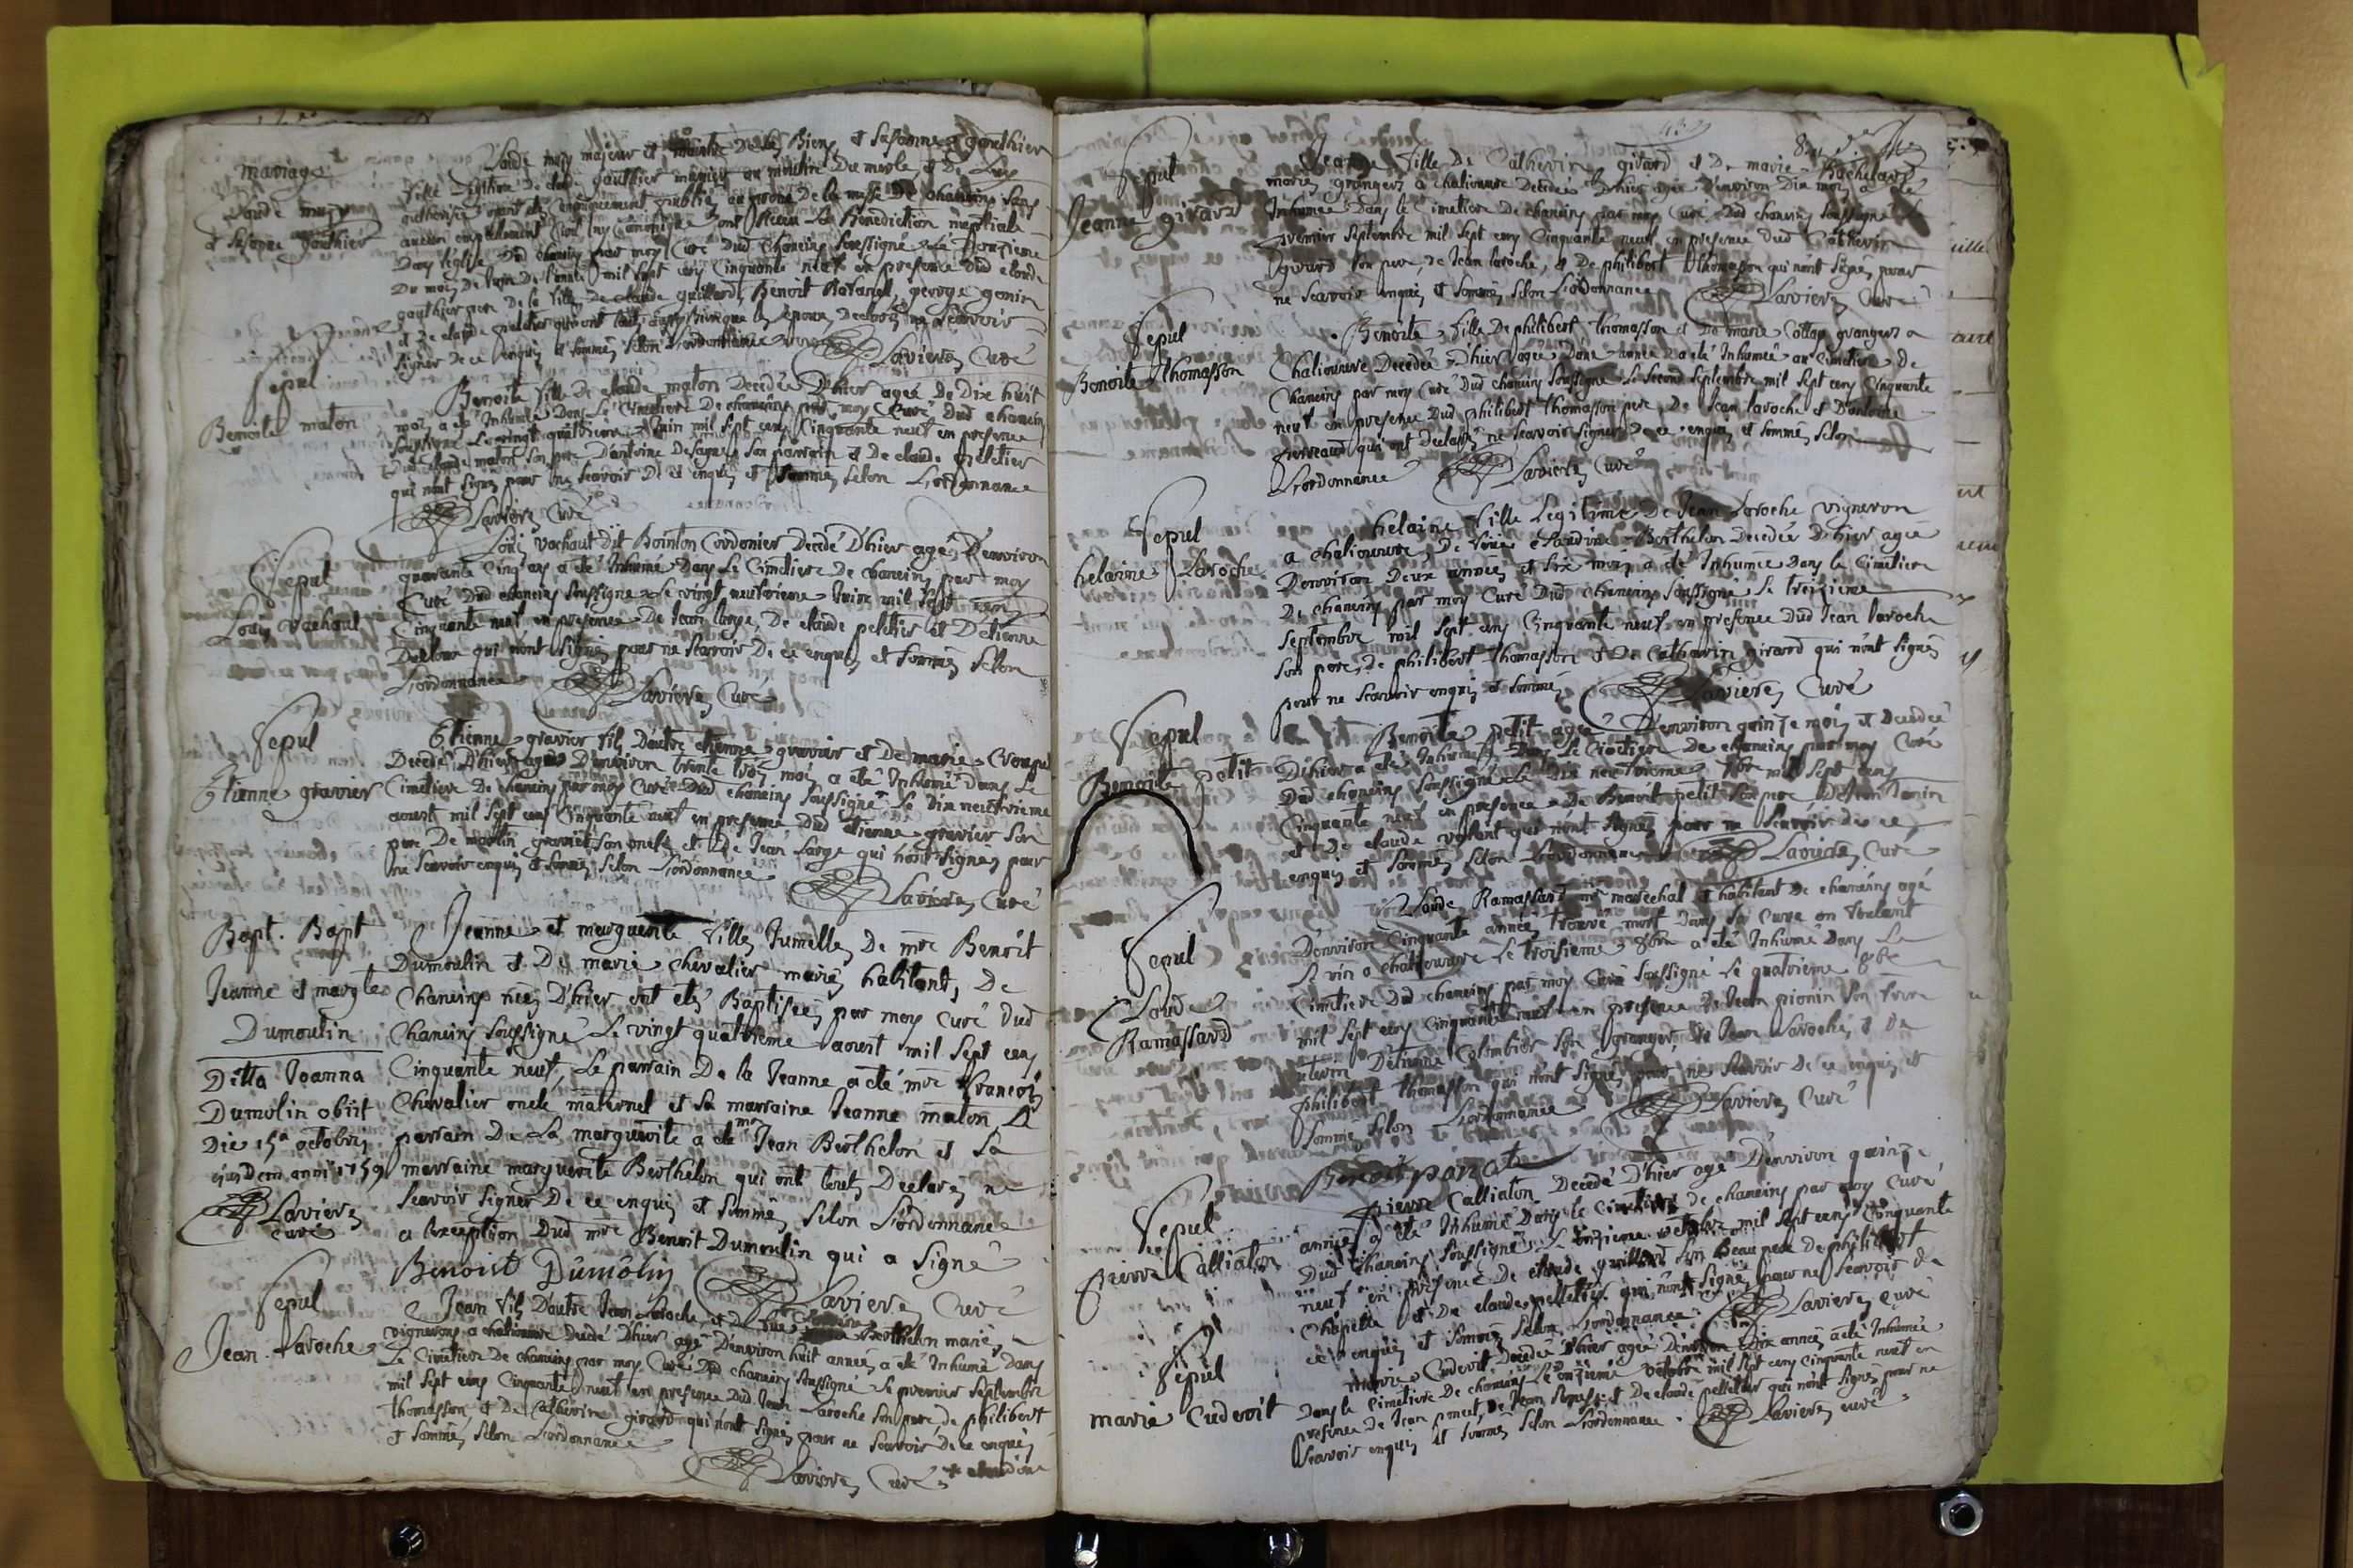 mariage
Claude mury
et Susanne gouthier
Claude mury majeur et maitre De ses Biens et Susanne gouthier
fille Legitime De claude gauthier meunier au moulin Du merle, et De
authorisée ayant etez publiés au prone De la messe De chaneins sans
aucun empechement Civil ny Canonique ont Receu La Benediction nuptiale
Dans L'église Dud chaneins par moy Curé Dud Chaneins Soussigné Le
Du mois De Juin De L'année mil sept cens Cinquante neuf en presence Dud claude
gauthier pere De la fille De claude guillard, Benoit Ravanel, george genin
et De claude peletier qui ont ainsy que les epoux Declarez ne Scavoir
signer De ce enquis et sommés selon L'ordonnance Laviere Curé
Sepul
Benoite maton
Benoite fille De claude maton Decedée D'hier agée de Dix huit
mois a eté Inhumée Dans Le Cimetiere De chaneins par moy Curé Dud chaneins
Soussigné Le vingt quatrieme Juin mil sept cens Cinquante neuf en presence
Dud claude maton son pere D'antoine Desagnes son parrain et De claude peletier
qui n'ont signés pour ne Scavoir De ce enquis et sommés selon L'ordonnance
Laviere Curé
Sepul
Louis Vachaut
Louis Vachaut Dit Bointon Cordonier Decedé D'hier agé D'environ
quarante Cinq ans a eté Inhumé Dans Le Cimetiere De chaneins par moy
Curé Dud chaneins Soussigné Le vingt neufvieme Juin mil sept cens
Cinquante neuf en presence De Jean large, De claude peletier et D'etienne
qui n'ont signés pour ne Scavoir De ce enquis et sommés selon
L'ordonnance Laviere Curé
Sepul
Etienne gravier
Etienne gravier fils D'autre etienne gravier et De marie
Decedé D'hier agé D'environ trente trois mois a eté Inhumé Dans Le
Cimetiere De chaneins par moy Curé Dud chaneins Soussigné Le Dix neufvieme
aoust mil sept cens Cinquante neuf en presence Dud etienne gravier son
pere De martin gravier son oncle et De Jean Large qui n'ont signés pour
ne Scavoir enquis et sommés selon L'ordonnance
Laviere Curé
Bapt. Bapt
Jeanne et margte
Dumoulin
Ditta Joanna
Dumolin obiit
Die 15a octobris
ejusdem anni 1759
Laviere
curé
Jeanne et marguerite filles Jumelles De mre Benoit
Dumoulin et De marie chevalier mariés habitants De
Chaneins nées D'hier ont etez Baptisées par moy curé dud
Chaneins Soussigné Le vingt quatrieme aoust mil sept cens
Cinquante neuf, Le parrain De la Jeanne a eté mre francois
Chevalier oncle maternel et sa marraine Jeanne maton Le
parrain De La marguerite a eté mre Jean Berthelon et sa
marraine marguerite Berthelon qui ont touts Declarez ne
Scavoir signer De ce enquis et sommés selon L'ordonnance
a L'exception Dud mre Benoit Dumoulin qui a signé
Benoist Dumolin Laviere Curé
Sepul
Jean Laroche
Jean fils D'autre Jean Laroche, et De Berthelon mariés
vignerons a chaliouvre Decedé D'hier agé D'environ huit années a eté Inhumé Dans
Le Cimetiere De chaneins par moy Curé Dud chaneins Soussigné Le premier septembre
mil sept cens Cinquante neuf en presence Dud Jean Laroche son pere, De philibert
Thomasson et De Catherin girard qui n'ont signés pour ne Scavoir De ce enquis
et sommés selon L'ordonnance
Laviere Curé * claudine
Sepul
Jeanne girard
Jeanne fille De Catherin girard et De marie Bachelard
mariés grangers a chaliouvre Decedée D'hier agée D'environ Dix mois a eté
Inhumée Dans le Cimetiere De chaneins par moy Curé Dud chaneins Soussigné Le
premier septembre mil sept cens Cinquante neuf en presence dud Catherin
girard son pere, De Jean laroche, et De philibert Thomasson qui n'ont signés pour
ne Scavoir enquis et sommés selon L'ordonnance Laviere Curé
Sepul
Benoite Thomasson
Benoite fille De philibert Thomasson et De marie Cottap grangers a
Chaliouvre Decedée D'hier agée D'une année a eté Inhumée au Cimetiere De
Chaneins par moy Curé Dud chaneins Soussigné Le Second Septembre mil sept cens Cinquante
neuf en presence Dud philibert Thomasson pere, De Jean laroche et D'antoine
perreaud qui ont Declarés ne Scavoir signer De ce enquis et sommés selon
L'ordonnance Laviere Curé
Sepul
helaine Laroche
helaine fille Legitime De Jean Laroche vigneron
a chaliouvre, De feüe claudine Berthelon Decedée D'hier agée
D'environ Deux années et six mois a eté Inhumée Dans le Cimetiere
De chaneins par moy Curé Dud chaneins Soussigné Le treizieme
septembre mil sept cens Cinquante neuf en presence Dud Jean laroche
son pere, De philibert Thomasson et De Catherin girard qui n'ont signés
pour ne Scavoir enquis et sommés Laviere Curé
Sepul
Benoite petit
Benoite petit agée D'environ quinze mois et Decedée
D'hier a eté Inhumée Dans Le Cimetiere De chaneins par moy Curé
Dud chaneins Soussigné Le Dix neufvieme 7bre mil sept cens
Cinquante neuf en presence De Benoit petit son pere De Jean
et De claude volant qui n'ont signés pour ne Scavoir de ce
enquis et sommés selon L'ordonnance Laviere Curé
Sepul
Claude
Ramassard
Claude Ramassard mre marechal et habitant De chaneins agé
D'environ Cinquante années trouvé mort Dans sa Cuve en foulant
Le vin a chaliouvre Le troisieme 8bre a eté Inhumé Dans Le
Cimetiere Dud chaneins par moy Curé Soussigné Le quatrieme 8bre
mil sept cens Cinquante neuf en presence De Jean pionin son frere
uterin D'etienne Colombier son granger, De Jean Laroche, et De
philibert Thomasson qui n'ont signés pour ne Scavoir De ce enquis et
sommé selon L'ordonnance Laviere Curé
Benoit ponat
Sepul
Pierre Calliaton
pierre Calliaton Decedé D'hier agé D'environ quinze
années a eté Inhumé Dans le Cimetiere de chaneins par moy Curé
Dud chaneins Soussigné Le onzieme octobre mil sept cens Cinquante
neuf en presence De claude guillard son Beau pere De philibert
Chapelle et De claude pelletier qui n'ont signés pour ne Scavoir de
ce enquis et sommés selon L'ordonnance Laviere curé
Sepul
marie Cudevit
marie Cudevit Decedée D'hier agée D'environ Dix années a eté Inhumée
Dans le Cimetiere De chaneins Le onzieme octobre mil sept cens Cinquante neuf en
presence De Jean poncet, De Jean et De claude pelletier qui n'ont signés pour ne
Scavoir enquis et sommés selon L'ordonnance Laviere curé